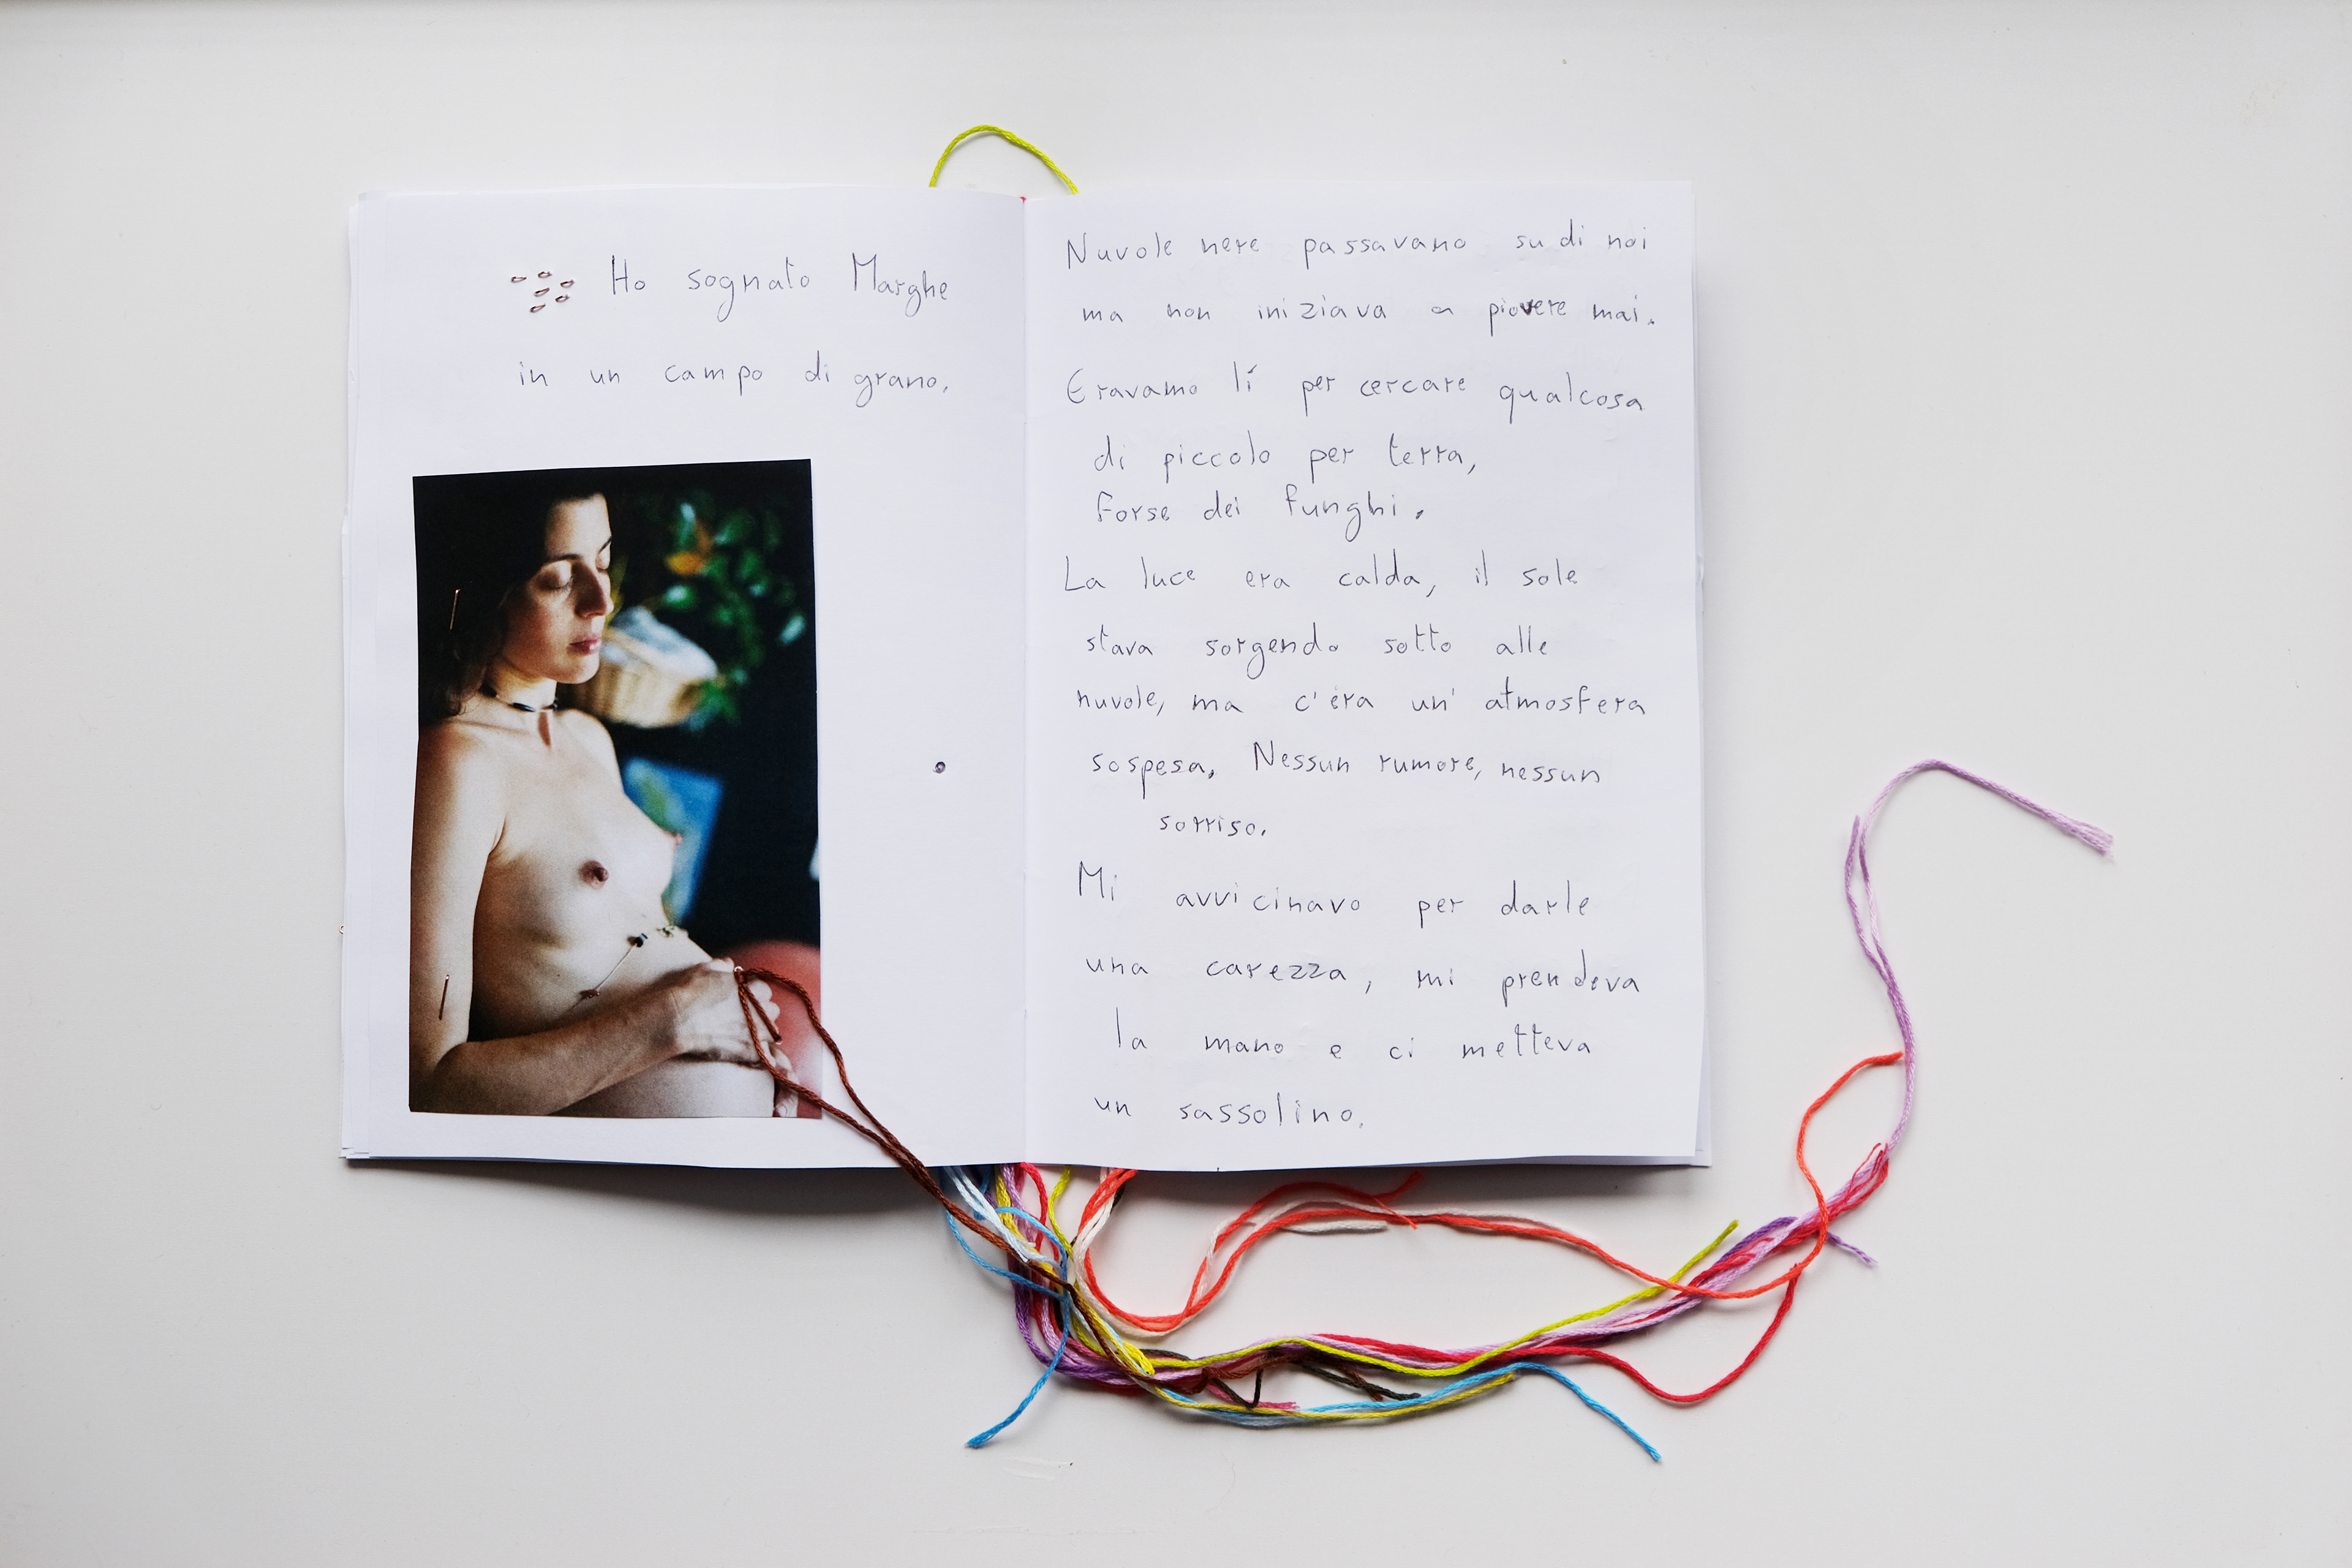 Ho sognato Marghe
in un campo di grano.
Nuvole nere passavano su di noi
ma non iniziava a piovere mai.
Eravamo lí per cercare qualcosa
di piccolo per terra,
forse dei funghi.
La luce era calda, il sole
stava sorgendo sotto alle
nuvole, ma c'era un' atmosfera
sospesa. Nessun rumore, nessun
sorriso.
Mi avvicinavo per darle
una carezza, mi prendeva
la mano e ci metteva
un sassolino.